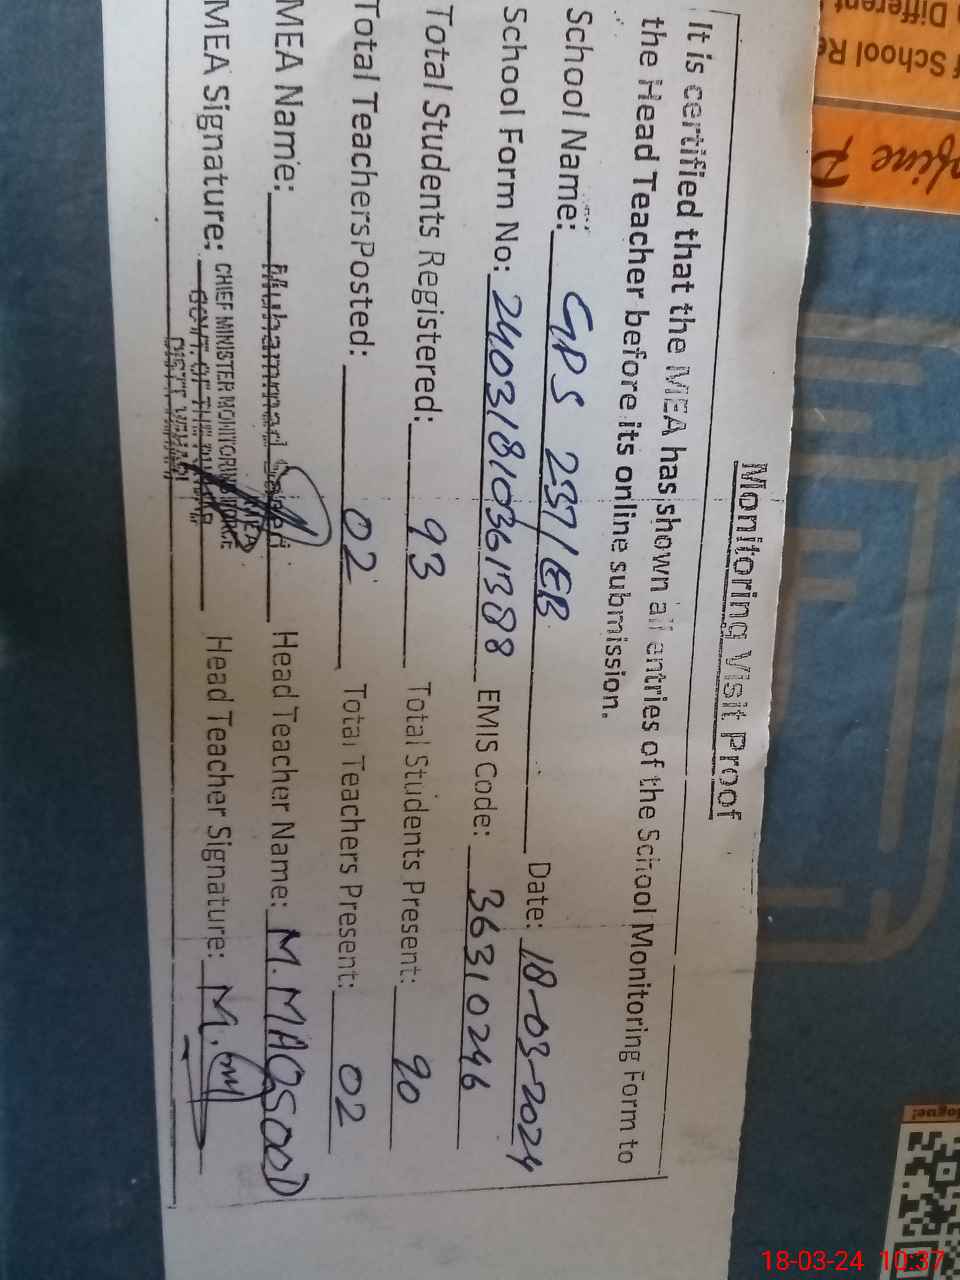 Monitoring Visit Proof
It is certified that the MEA has shown all entries of the School Monitoring Form to
the Head Teacher before its online submission.
School Name: GPS 237/EB Date: 18-03-2024
School Form No: 24031810361388 EMIS Code: 36310246
Total Students Registered: 93 Total Students Present: 90
Total TeachersPosted: 02 Total Teachers Present: 02
MEA Name: Muhammad Head Teacher Name: M. MAQSOOD
MEA
MEA Signature: Head Teacher Signature: M.
CHIEF MINISTER MONITORING FORCE
GOVT. OF THE PUNJAB
DISTT. VEHARI
Different
School Re
ogue!
18-03-24 10:37